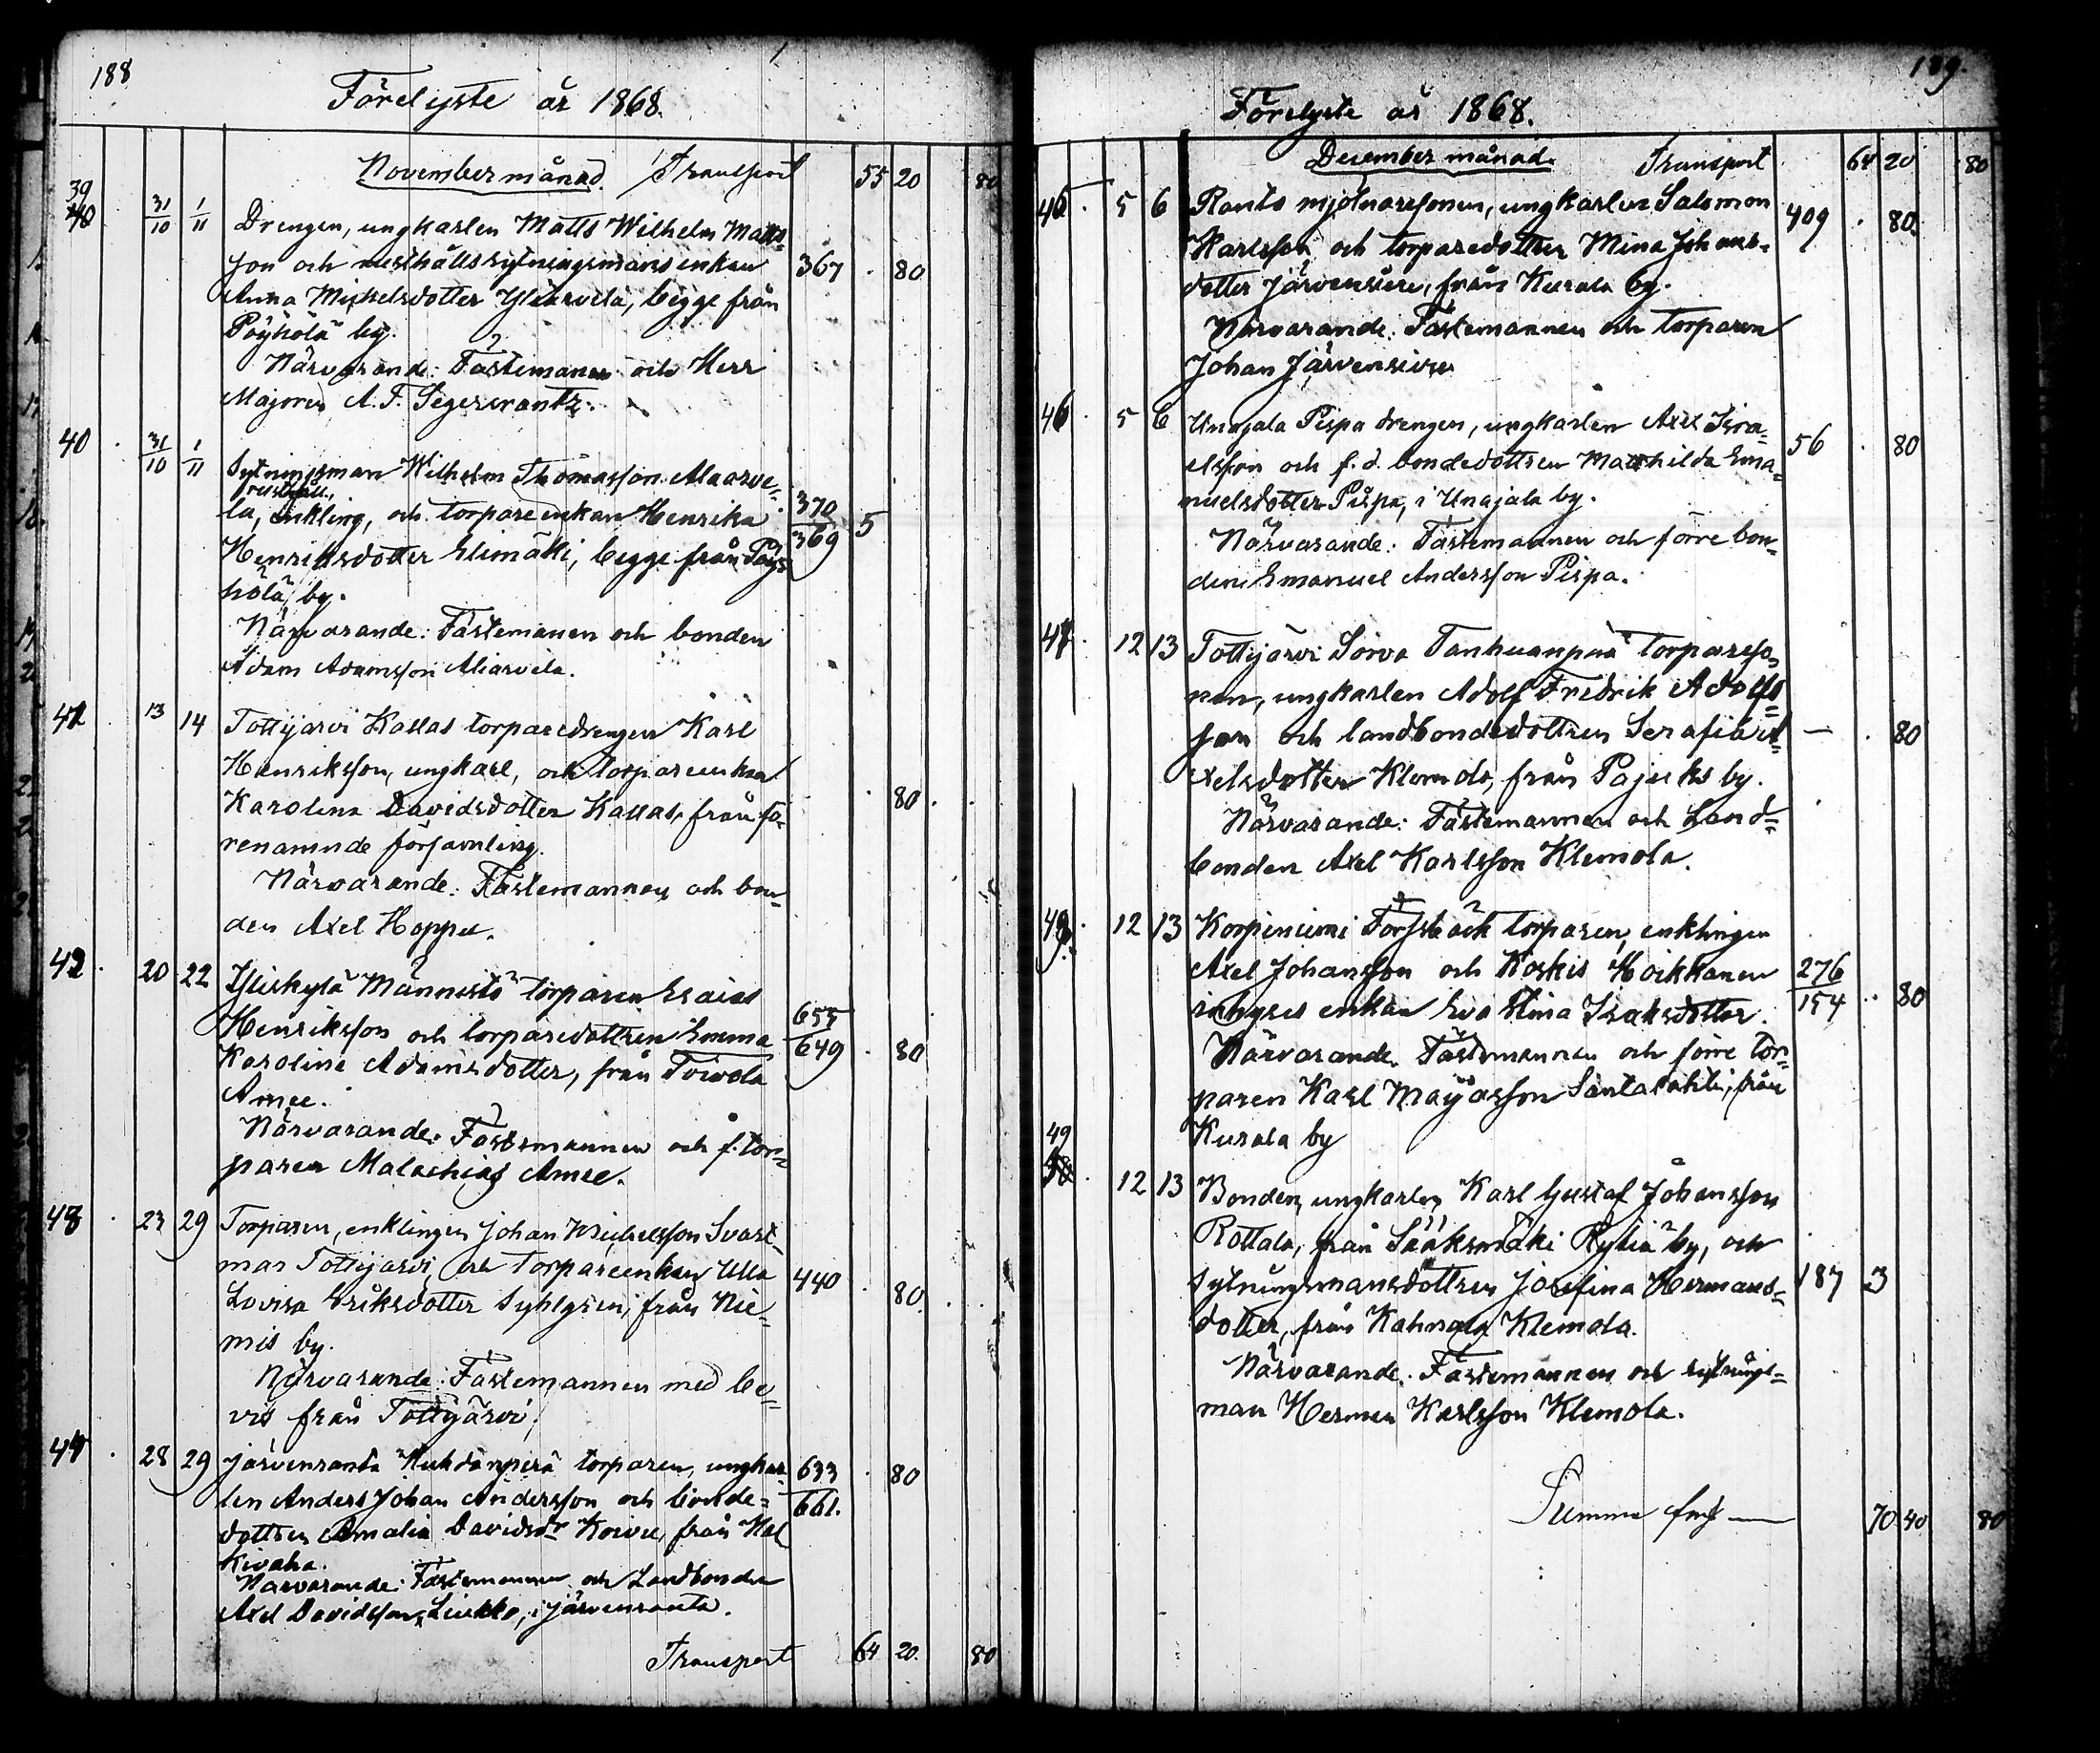 188
Förelyste år 1868.
November månad. Transport 55 20 80
39
40 31/10 1/11 Drengen, ungkarlen Matts Wilhelm Matts-
son och rusthållssytningsmansenkan 367 . 80
Anna Michelsdotter Yliarvela, begge från
Pöyhölä by.
Närvarande: Fästemannen och Herr
Majoren A. F. Segercrantz.
40 . 31/10 1/11 Sytningsman Wilhelm Thomasson Alaarve-
rusthåll.
la, enkling, och torpareenkan Henrika 370/369 5
Henriksdotter Elimäki, begge från Pöy-
hölä by.
Närvarande: Fästemannen och bonden
Adam Adamsson Aliarvela.
41 . 13 14 Tottijärvi Kallas torparedrengen Karl
Henriksson, ungkarl, och torpareenkan
Karolina Davidsdotter Kallas, från fö- . 80
renämnde församling.
Närvarande: Fästemannen och bon-
den Axel Hoppu.
42 . 20 22 Yliskylä Männistö torparen Esaias
Henriksson och torparedottren Emma 655/649 . 80
Karolina Adamsdotter, från Toivola
Amee.
Närvarande: Fästemannen och f. tor-
paren Malachias Amee.
43 . 23 29 Torparen, enklingen Johan Michelsson Svart-
mar Tottijärvi, och torpareenkan Ulla 440 . 80
Lovisa Eriksdotter Syhlgren, från Nie-
mis by.
Närvarande: Fästemannen med be-
vis från Tottijärvi.
44 . 28 29 Järvenranta Kuhdanperä torparen, ungkar- 633/661. . 80
len Anders Johan Andersson och bonde-
dottren Amalia Davidsdr Koivu, från Hal
kivaha.
Närvarande: Fästemannen och Landbonden
Axel Davidsson Liukko, i Järvenranta.
Transport 64 20 80
189.
Förelyste år 1868.
December månad. Transport 64 20 80
45 . 5 6 Ranto mjölnaressonen, ungkarlen Salomon 409 . 80.
Karlsson och torparedottren Mina Johans-
dotter Järvensivu, från Kurala by.
Närvarande: Fästemannen och torparen
Johan Järvensivu
46 . 5 6 Unajala Pispa drengen, ungkarlen Axel Isra- 56 . 80
elsson och f. d. bondedottren Mathilda Ema-
nuelsdotter Pispa, i Unajala by.
Närvarande: Fästemannen och förre bon-
den Emanuel Andersson Pispa.
47 . 12 13 Tottijärvi Sorva Tanhuanpää torpareso-
nen, ungkarlen Adolf Fredrik Adolfs-
son och landbondedottren Serafia A- — . 80
xelsdotter Klemola, från Pajuks by.
Närvarande: Fästemannen och Land-
bonden Axel Karlsson Klemola.
48 . 12 13 Korpiniemi Forsbäck torparen, enklingen
Axel Johansson och Koskis Hoikkanen 276/154 . 80
inhyses enkan Eva Stina Isaksdotter.
Närvarande. Fästemannen och förre tor-
paren Karl Majasson Santalahti, från
Kurala by
49 . 12 13 Bonden, ungkarlen Karl Gustaf Johansson
Rottala, från Sääksmäki Rytiä by, och
sytningsmansdottren Josefina Hermans- 187 3
dotter, från Kahnala Klemola.
Närvarande. Fästemannen och sytnings-
man Herman Karlsson Klemola.
Summa 70 40 80